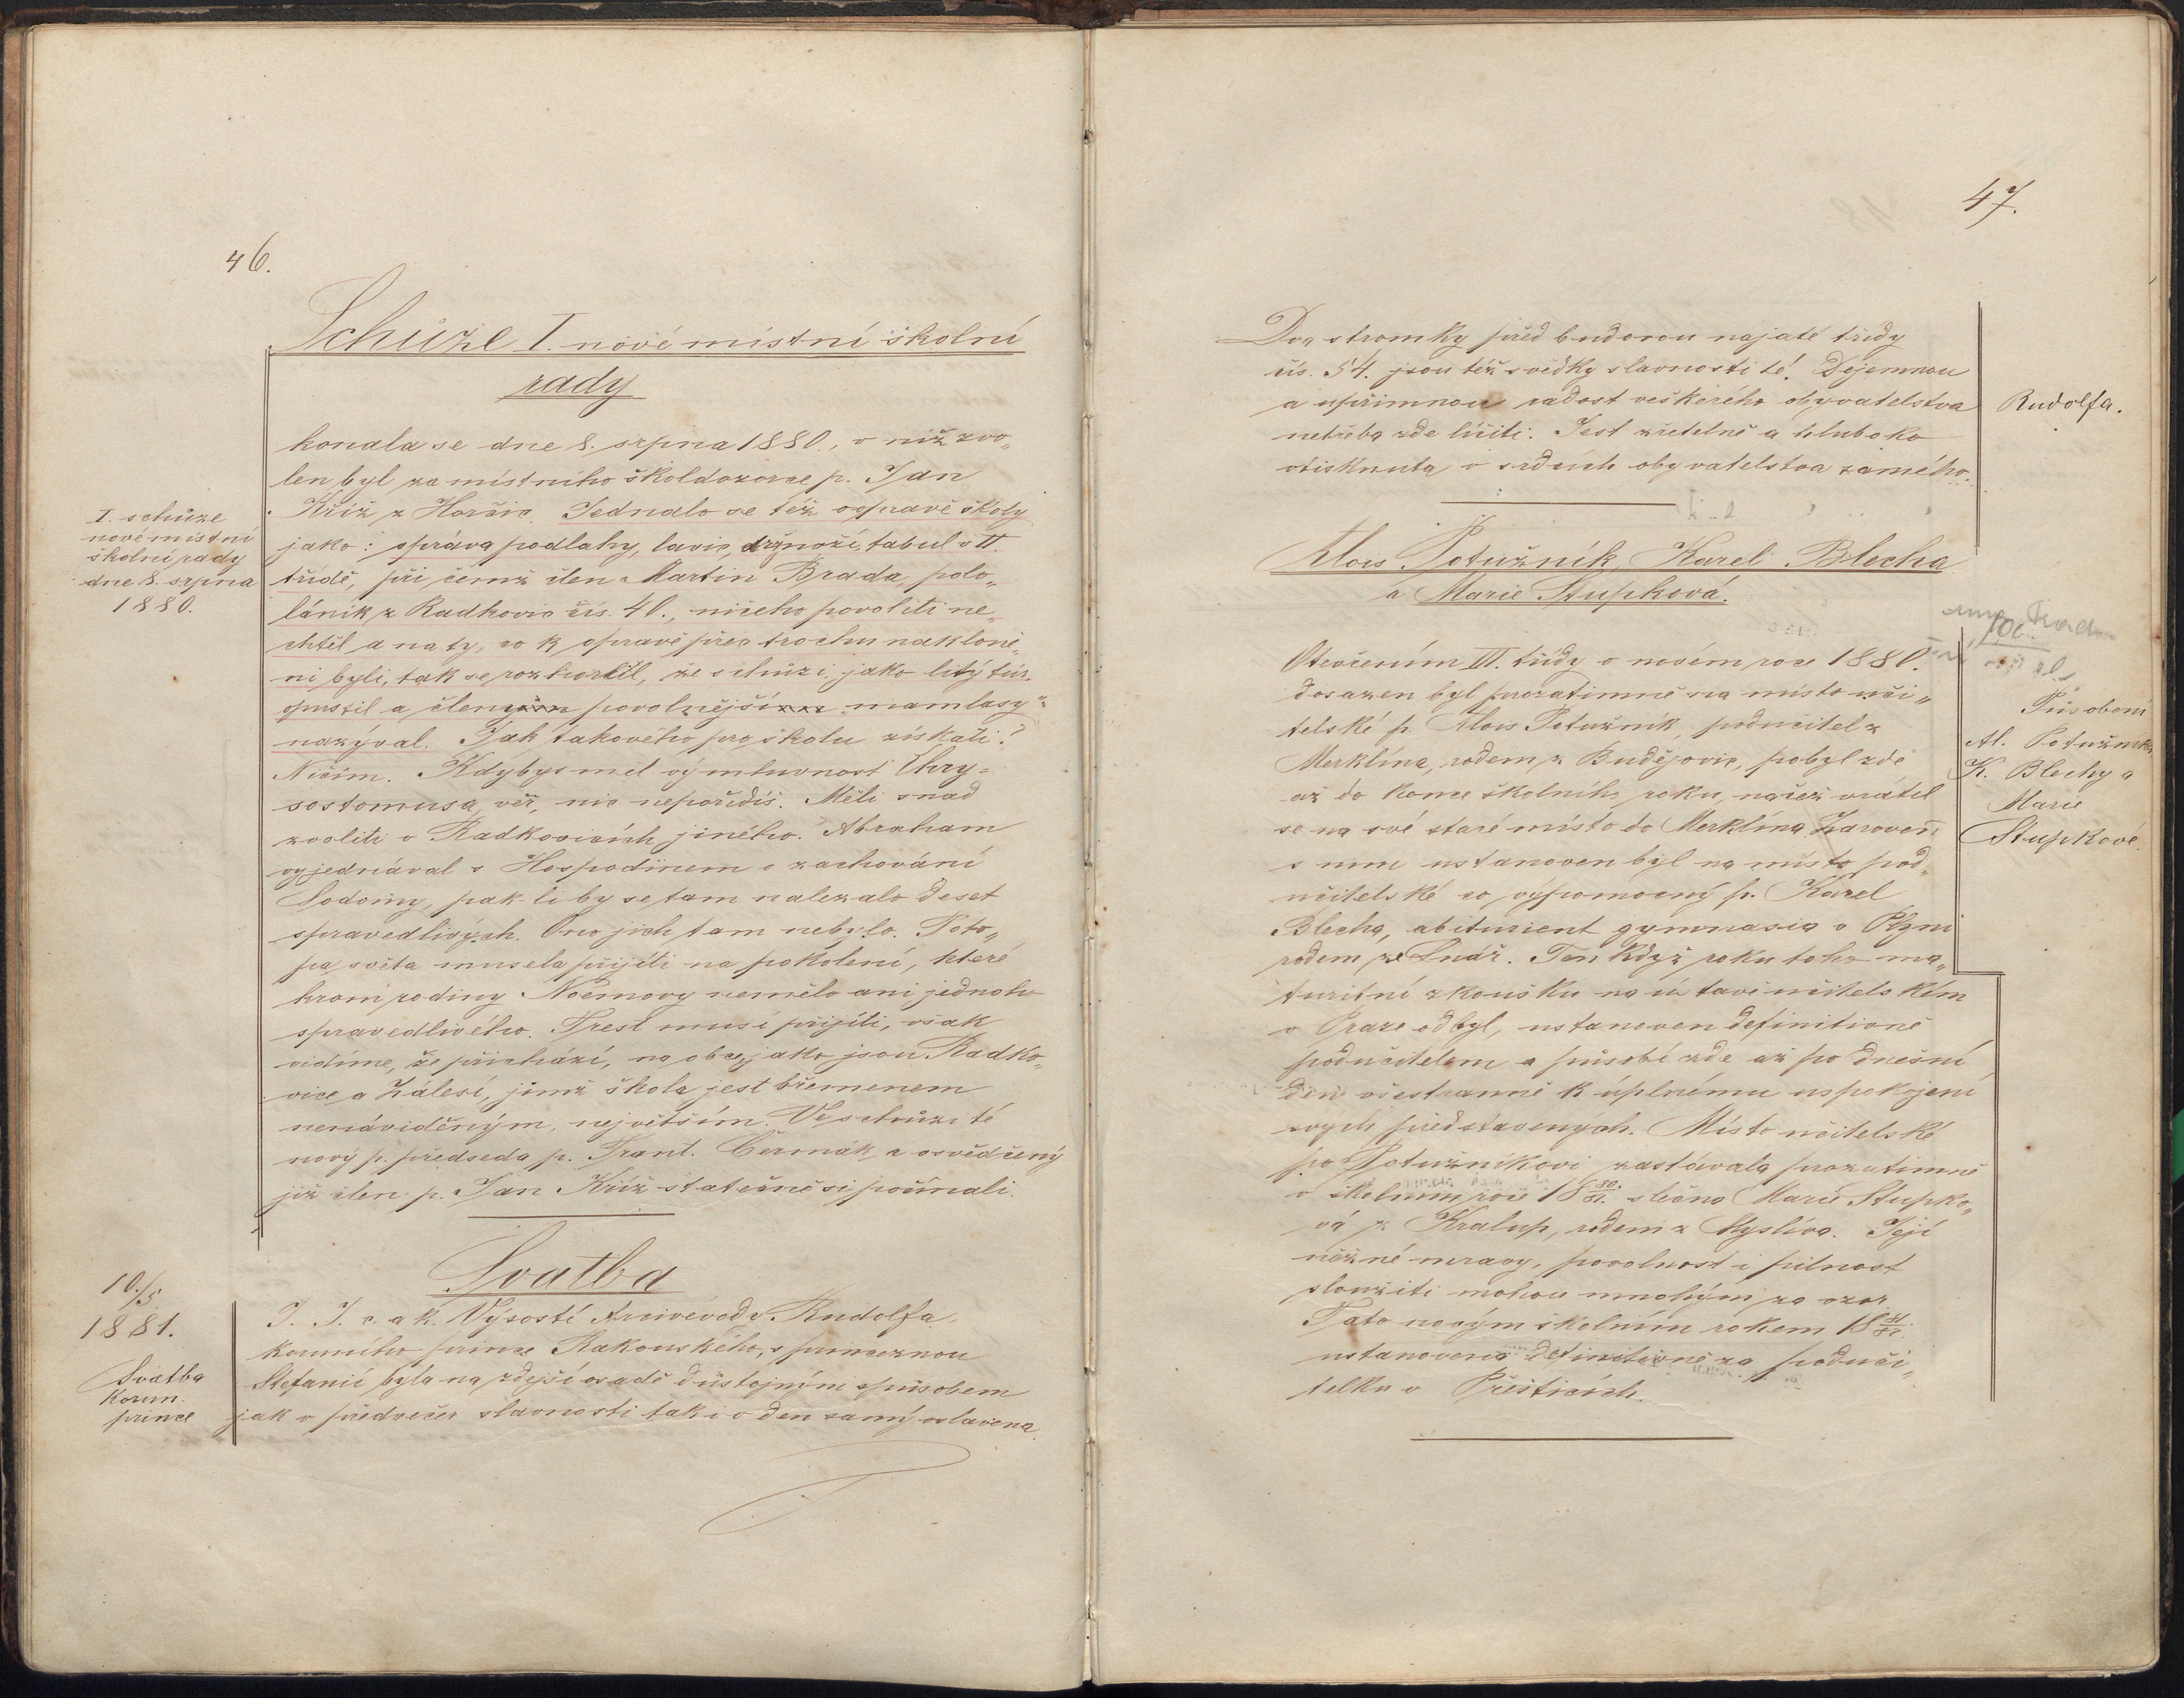 46.
Schůze I. nové místní školní
rady
konala se dne 8. srpna 1880., v níž zvo„
len byl za místního školdozorce p. Jan
Kříž z Horšic. Jednalo se též opravě školy
jako: správa podlahy, lavic, držnoží, tabul v II.
třídě, při čemž člen Martin Brada, polo„
láník z Radkovic čís. 40., ničeho povoliti ne„
chtěl a na ty, co k opravě přec trochu nakloně„
ni byli, tak se rozhorlil, že schůzi, jako litý tur,
opustil a členy povolnější „mamlasy“
nazýval. Jak takového pro školu získati?
Ničím. Kdybys měl výmluvnost Chry=
sostomusa, věř, nic nepořídíš. Měli snad
zvoliti v Radkovicích jiného. Abraham
vyjednával s Hospodinem o zachování
Sodomy, pak-li by se tam nalezalo deset
spravedlivých. Ono jich tam nebylo. Poto„
pa světa musela přijíti na pokolení, které
krom rodiny Noemovy nemělo ani jednoho
spravedlivého. Trest musí přijíti, však
vidíme, že přichází, na obce, jako jsou Radko„
vice a Zálesí, jimž škola jest břemenem
nenáviděným, největším. Ve schůzi té
nový p. předseda p. Frant. Čermák a osvědčený
již člen p. Jan Kříž statečně si počínali.
I. schůze
nové místní
školní rady
dne 8. srpna
1880.
Svatba
J. J. c. a k. Výsostí Arcivévody Rudolfa,
korunního prince Rakouského, s princeznou
Stefanií byla na zdejší osadě důstojným způsobem
jak v předvečer slavnosti tak i v den samý oslavena.
10./5
1881.
Svatba
Korun.
prince
47.
Dva stromky před budovou najaté třídy
čís. 54. jsou též svědky slavnosti té. Dojemnou
a upřimnou radost veškerého obyvatelstva
netřeba zde líčiti: Jest zřetelně a hluboko
vtisknuta v srdcích obyvatelstva samého.
Rudolfa.
Alois Potužník, Karel Blecha
a Marie Stupková.
Otevřením III. třídy v novém roce 1880.
dosazen byl prozatimně na místo uči„
telské p. Alois Potužník, podučitel z
Merklína, rodem z Budějovic, pobyl zde
až do konce školního roku, načež vrátil
se na své staré místo do Merklína. Zároveň
s ním ustanoven byl na místo pod„
učitelské co výpomocný p. Karel
Blecha, abiturient gymnasia v Plzni
rodem ze Lnář. Ten když roku toho ma„
turitní zkoušku na ústavě učitelském
v Praze odbyl, ustanoven definitivně
podučitelem a působí zde až po dnešní
den všestranně k úplnému uspokojení
svých představených. Místo učitelské
po Potužníkovi zastávala prozatimně
v školním roce 18 80/81. slečna Marie Stupko„
vá z Kralup, rodem z Myslíva. Její
něžné mravy, povolnost i pilnost
sloužiti mohou mnohým za vzor.
Tato novým školním rokem 18 81/82.
ustanovena definitivně za poduči„
telku v Přešticích.
Působení
Al. Potužníka,
K. Blechy a
Marie
Stupkové.